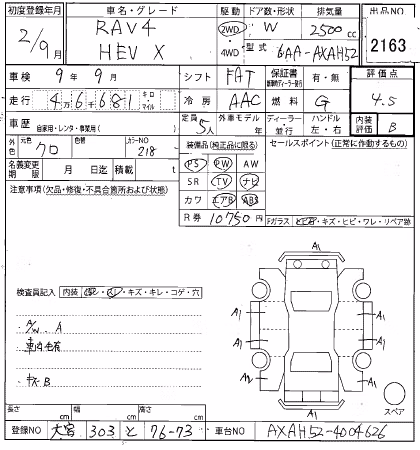 初度登録年月 車名・グレード 駆動 ドア数・形状 排気量 出品NO
2/9月 RAV4 HEV X 2WD ・ 4WD W 2500 cc 2163
型式 6AA-AXAH52
車検 9年 9月 シフト FAT 保証書 有・無 評価点 4.5
走行 4万6681 キロ マイル 冷房 AAC 燃料 G
車歴 自家用・レンタ・事業用( ) 定員 5人 外車モデル 年 ディーラー・並行 ハンドル 左・右 内装評価 B
外色 元色 クロ 色替 カラーNO 218 装備品(純正品に限る) セールスポイント(正常に作動するもの)
名義変更期限 月 日迄 積載 t PS PW AW
注意事項(欠品・修復・不具合箇所および状態) SR TV ナビ
カワ エアB ABS
R券 10750円 Fガラス トビ石・キズ・ヒビ・ワレ・リペア跡
A1
検査員記入 内装 ・キズ・キレ・コゲ・穴
A1 A1
A/W A
車内毛有
キズB
A1 A1
A2 A1
A1 スペア
長さ cm 幅 cm 高さ cm
登録NO 大宮 303 と 76-73 車台NO AXAH52-4004626